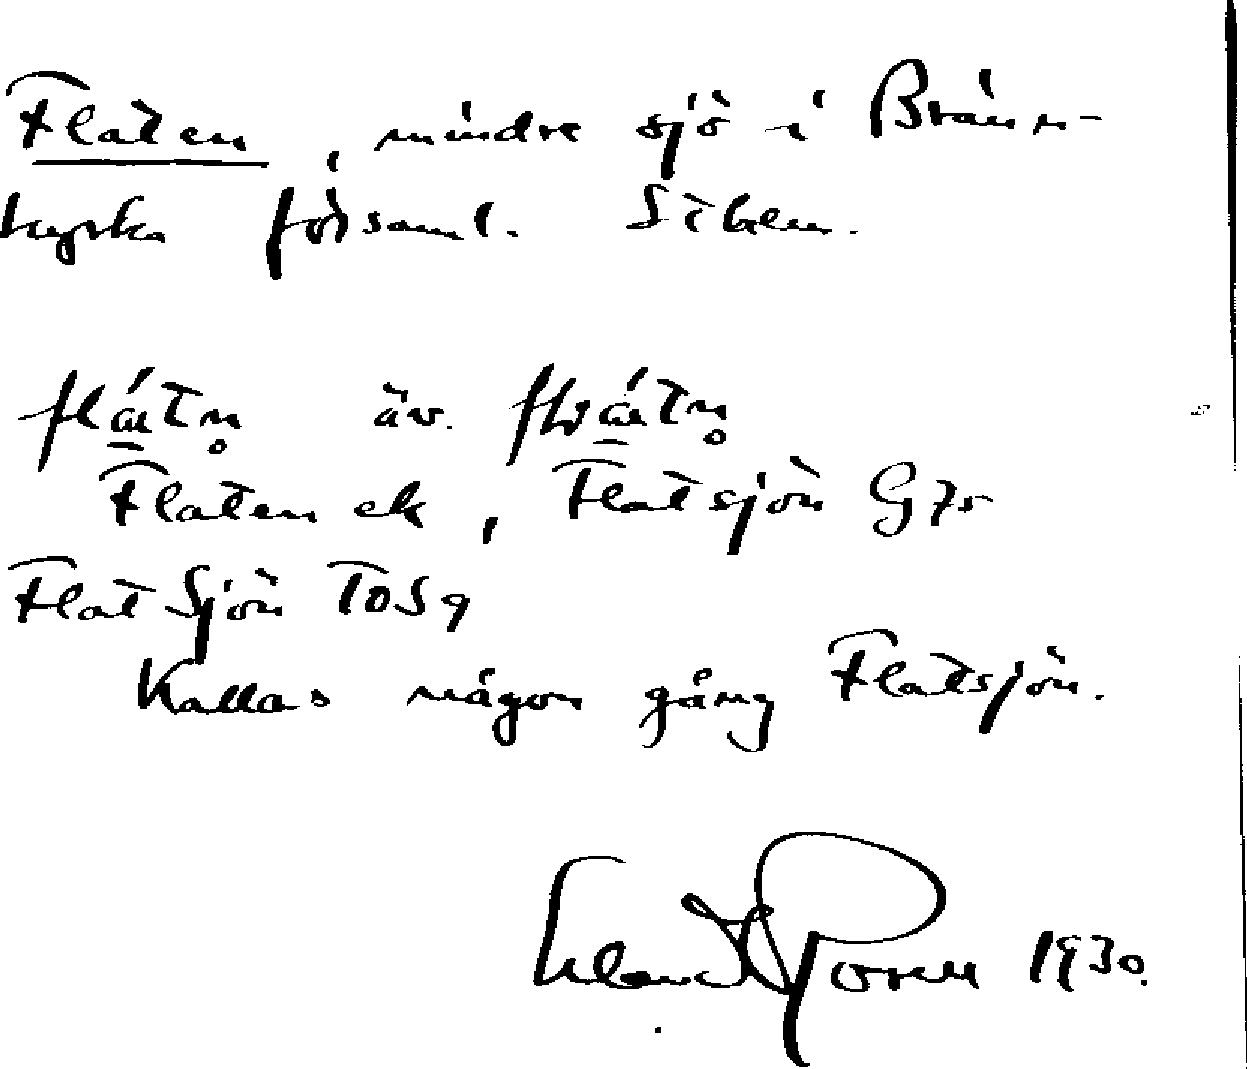 Flaten, mindre sjö i Bränn-
kyrka församl. Söderm.
flátn̥ äv. flwátn̥
Flaten ek, Flatsjön G75
Flat Sjön TOS9
Kallas någon gång Flatsjön.
1930.